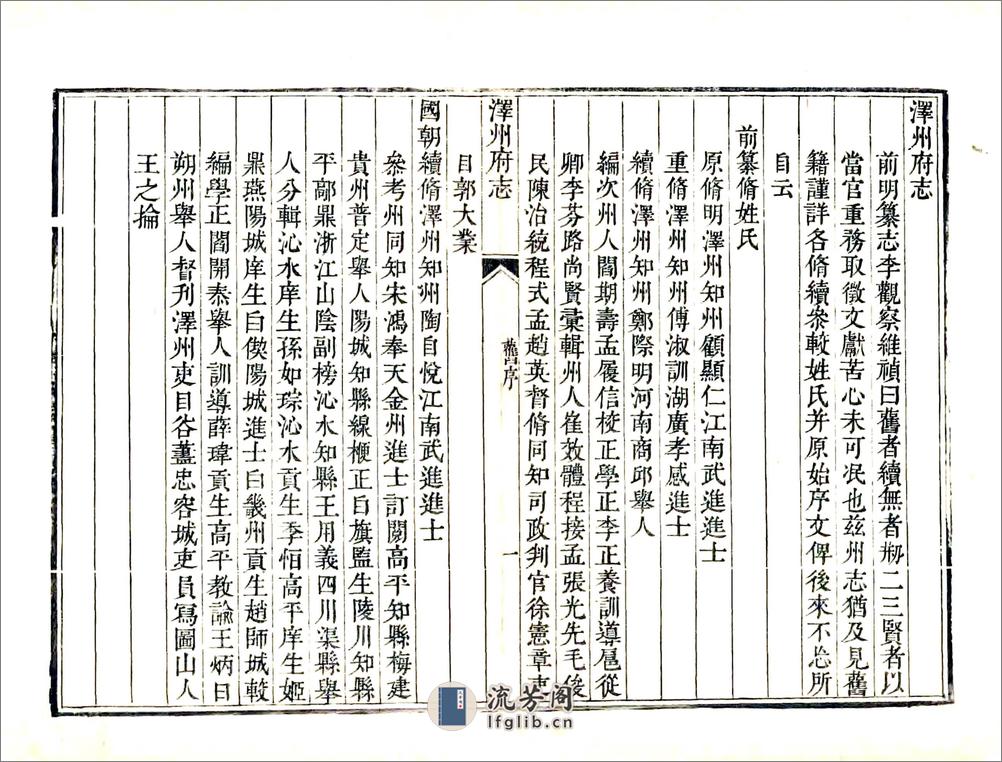 澤州府志
前明纂志李觀察維禎曰舊者續無者刱二三賢者以
當官重務取徵文獻苦心未可泯也茲州志猶及見舊
籍謹詳各脩續叅較姓氏并原始序文俾後來不忘所
自云
前纂脩姓氏
原脩明澤州知州顧顯仁江南武進進士
重脩澤州知州傅淑訓湖廣孝感進士
續脩澤州知州鄭際明河南商邱舉人
編次州人閻期壽孟履信校正學正李正養訓導扈從
卿李芬路尚賢彚輯州人崔效體程接孟張光先毛俊
民陳治統程式孟趙英督脩同知司政判官徐憲章吏
目郭大業
澤州府志
舊序
一
國朝續脩澤州知州陶自悅江南武進進士
叅考州同知宋鴻奉天金州進士訂閱高平知縣梅建
貴州普定舉人陽城知縣線㮰正白旗監生陵川知縣
平鄗鼎浙江山陰副榜沁水知縣王用義四川渠縣舉
人分輯沁水庠生孫如琮沁水貢生季怕高平庠生姬
鼎燕陽城庠生白偀陽城進士白畿州貢生趙師城較
編學正閻開泰舉人訓導薛瑋貢生高平教諭王炳曰
朔州舉人督刊澤州吏目昝藎忠容城吏員寫圖山人
王之掄
流芳阁
lfglib.cn